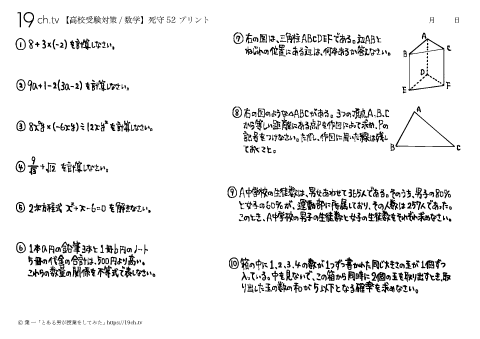 19 ch.tv 【高校受験対策/数学】死守52プリント
月 日
① 8+3×(-2)を計算しなさい。
② 9a+1-2(3a-2)を計算しなさい。
③ 8x²y×(-6xy)÷12xy²を計算しなさい。
④ 9/√3-√12 を計算しなさい。
⑤ 2次方程式 x²+x-6=0を解きなさい。
⑥ 1本a円の鉛筆3本と1冊b円のノート
5冊の代金の合計は、500円より高い。
これらの数量の関係を不等式で表しなさい。
⑦ 右の図は、三角柱ABCDEFである。辺ABと
ねじれの位置にある辺は、何本あるか答えなさい。
A
B
C
D
E
F
⑧ 右の図のような△ABCがある。3つの頂点A、B、C
から等しい距離にある点Pを作図によって求め、Pの
記号をつけなさい。ただし、作図に用いた線は残し
ておくこと。
A
B
C
⑨ A中学校の生徒数は、男女あわせて365人である。そのうち、男子の80%
と女子の60%が、運動部に所属しており、その人数は257人であった。
このとき、A中学校の男子の生徒数と女子の生徒数をそれぞれ求めなさい。
⑩ 箱の中に1、2、3、4の数が1つずつ書かれた同じ大きさの玉が1個ずつ
入っている。中を見ないで、この箱から同時に2個の玉を取り出すとき、取
り出した玉の数の和が5以下となる確率を求めなさい。
© 葉一「とある男が授業をしてみた」https://19ch.tv